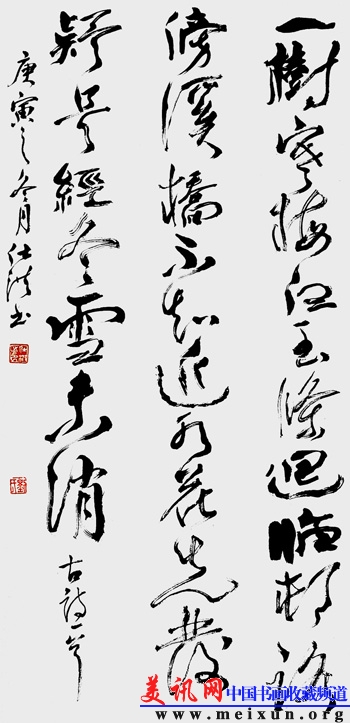 一樹寒梅白玉條迥臨村路
傍溪橋不知近水花先發
疑是經冬雪未消 古詩一首
庚寅之冬月仕书
美讯网 中国书画收藏频道
www.meixun.org